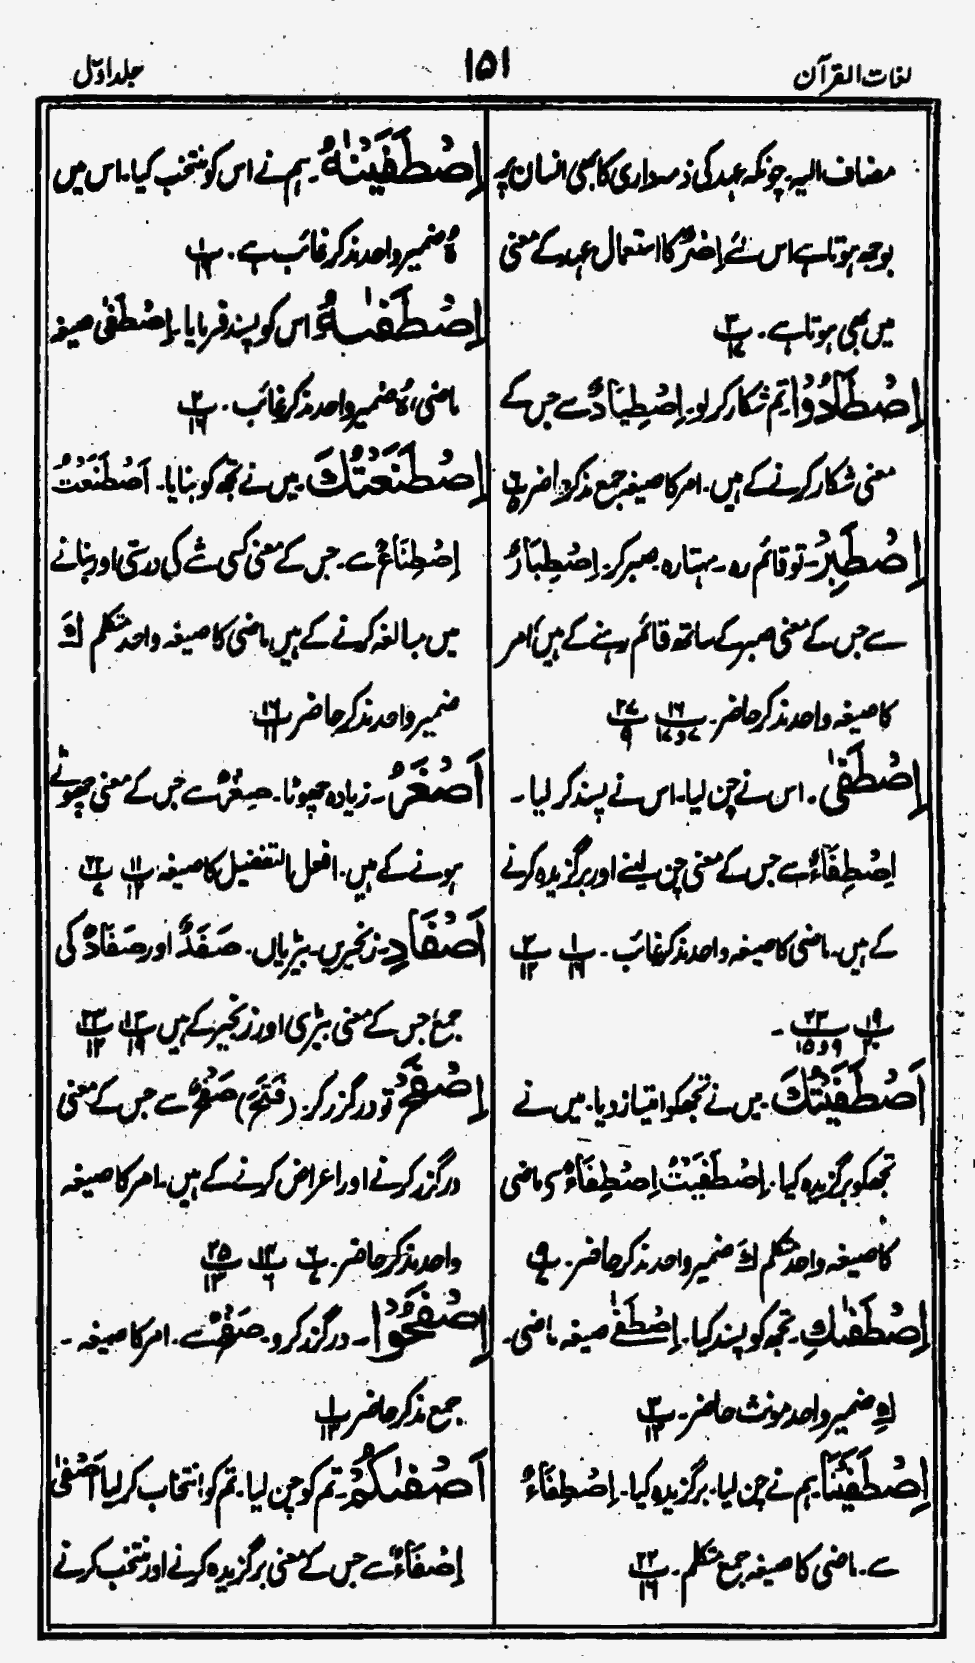 لغات القرآن
۱۵۱
جلد اوّل
مضاف الیہ۔ چونکہ عہد کی ذمہ داری کا بھی انسان پر
بوجھ ہوتا ہے اس لئے اِصْرٌ کا استعمال عہد کے معنی
میں بھی ہوتا ہے۔ پ۳ ۱۷
اِصْطَادُوْا۔ تم شکار کر لو۔ اِصْطِیَادٌ سے جس کے
معنی شکار کرنے کے ہیں۔ امر کا صیغہ جمع مذکر حاضر پ۶ ۵
اِصْطَبِرْ۔ تو قائم رہ۔ سہتا رہ۔ صبر کر۔ اِصْطِبَارٌ
سے جس کے معنی صبر کے ساتھ قائم رہنے کے ہیں، امر
کا صیغہ واحد مذکر حاضر۔ پ۱۶ ۷و۱۷ پ۲۷ ۹
اِصْطَفٰی۔ اس نے چن لیا۔ اس نے پسند کر لیا۔
اِصْطِفَاءٌ سے جس کے معنی چن لینے اور برگزیدہ کرنے
کے ہیں۔ ماضی کا صیغہ واحد مذکر غائب۔ پ۱ ۱۶ پ۳ ۱۲
پ۱۹ ۲۰ پ۲۳ ۹و۱۵۔
اَصْطَفَیْتُكَ۔ میں نے تجھ کو امتیاز دیا۔ میں نے
تجھ کو برگزیدہ کیا۔ اِصْطَفَیْتُ اِصْطِفَاءٌ سے ماضی
کا صیغہ واحد متکلم كَ ضمیر واحد مذکر حاضر۔ پ۹ ۷
اِصْطَفٰىكِ۔ تجھ کو پسند کیا۔ اِصْطَفٰی صیغہ ماضی۔
كِ ضمیر واحد مونث حاضر۔ پ۳ ۱۳
اِصْطَفَیْنَا۔ ہم نے چن لیا۔ برگزیدہ کیا۔ اِصْطِفَاءٌ
سے۔ ماضی کا صیغہ جمع متکلم۔ پ۲۲ ۱۶
اِصْطَفَیْنٰهُ۔ ہم نے اس کو منتخب کیا۔ اس میں
ہُ ضمیر واحد مذکر غائب ہے۔ پ۱ ۱۶
اِصْطَفٰىهُ اس کو پسند فرمایا۔ اِصْطَفٰی صیغہ
ماضی، ہُ ضمیر واحد مذکر غائب۔ پ۲ ۱۶
اِصْطَنَعْتُكَ۔ میں نے تجھ کو بنایا۔ اَصْطَنَعْتُ
اِصْطِنَاعٌ سے۔ جس کے معنی کسی شے کی درستی اور بنانے
میں مبالغہ کرنے کے ہیں ماضی کا صیغہ واحد متکلم كَ
ضمیر واحد مذکر حاضر پ۱۶ ۱۱
اَصْغَرُ۔ زیادہ چھوٹا۔ صِغَرٌ سے جس کے معنی چھوٹے
ہونے کے ہیں۔ افعل التفضیل کا صیغہ پ۱۱ ۱۲ پ۲۲ ۷
اَصْفَادِ۔ زنجیریں۔ بیڑیاں۔ صَفَدٌ اور صَفَادٌ کی
جمع جس کے معنی بیڑی اور زنجیر کے ہیں پ۱۳ ۱۹ پ۲۳ ۱۲
اِصْفَحْ تو درگزر کر۔ (فَتَحَ) صَفْحٌ سے جس کے معنی
درگزر کرنے اور اعراض کرنے کے ہیں۔ امر کا صیغہ
واحد مذکر حاضر۔ پ۶ ۷ پ۱۴ ۶ پ۲۵ ۱۳
اِصْفَحُوْا۔ درگزر کرو۔ صَفْحٌ سے۔ امر کا صیغہ۔
جمع مذکر حاضر پ۱ ۱۳
اَصْفٰىكُمْ۔ تم کو چن لیا۔ تم کو انتخاب کر لیا اَصْفٰی
اِصْفَاءٌ سے جس کے معنی برگزیدہ کرنے اور منتخب کرنے